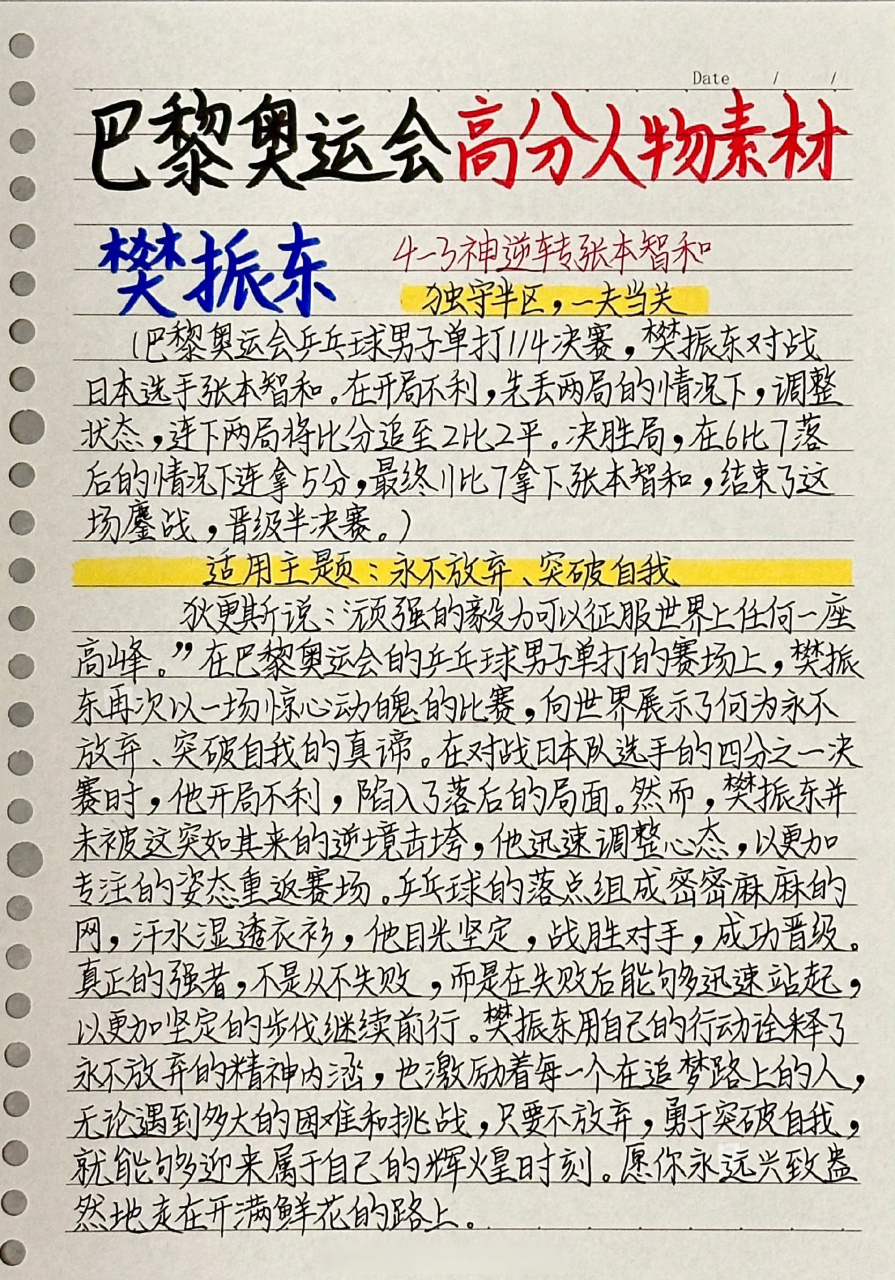 Date / /
巴黎奥运会高分人物素材
樊振东
4-3神逆转张本智和
独守半区，一夫当关
(巴黎奥运会乒乓球男子单打1/4决赛，樊振东对战
日本选手张本智和。在开局不利，先丢两局的情况下，调整
状态，连下两局将比分追至2比2平。决胜局，在6比7落
后的情况下连拿5分，最终11比7拿下张本智和，结束了这
场鏖战，晋级半决赛。)
适用主题：永不放弃、突破自我
狄更斯说：“顽强的毅力可以征服世界上任何一座
高峰。”在巴黎奥运会的乒乓球男子单打的赛场上，樊振
东再次以一场惊心动魄的比赛，向世界展示了何为永不
放弃、突破自我的真谛。在对战日本队选手的四分之一决
赛时，他开局不利，陷入了落后的局面。然而，樊振东并
未被这突如其来的逆境击垮，他迅速调整心态，以更加
专注的姿态重返赛场。乒乓球的落点组成密密麻麻的
网，汗水湿透衣衫，他目光坚定，战胜对手，成功晋级。
真正的强者，不是从不失败，而是在失败后能够迅速站起，
以更加坚定的步伐继续前行。樊振东用自己的行动诠释了
永不放弃的精神内涵，也激励着每一个在追梦路上的人，
无论遇到多大的困难和挑战，只要不放弃，勇于突破自我，
就能够迎来属于自己的辉煌时刻。愿你永远兴致盎
然地走在开满鲜花的路上。